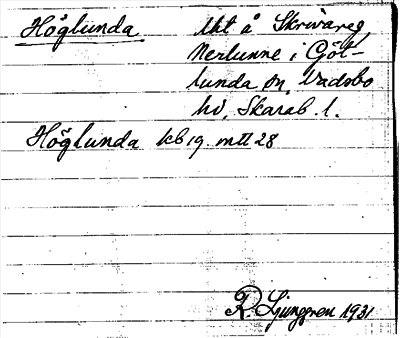 Höglunda lht å Skrivareg,
Nerlunne i Göt-
lunda sn, Vadsbo
hd, Skarab. l.
Höglunda kb 19. mtl 28
R Ljunggren 1931